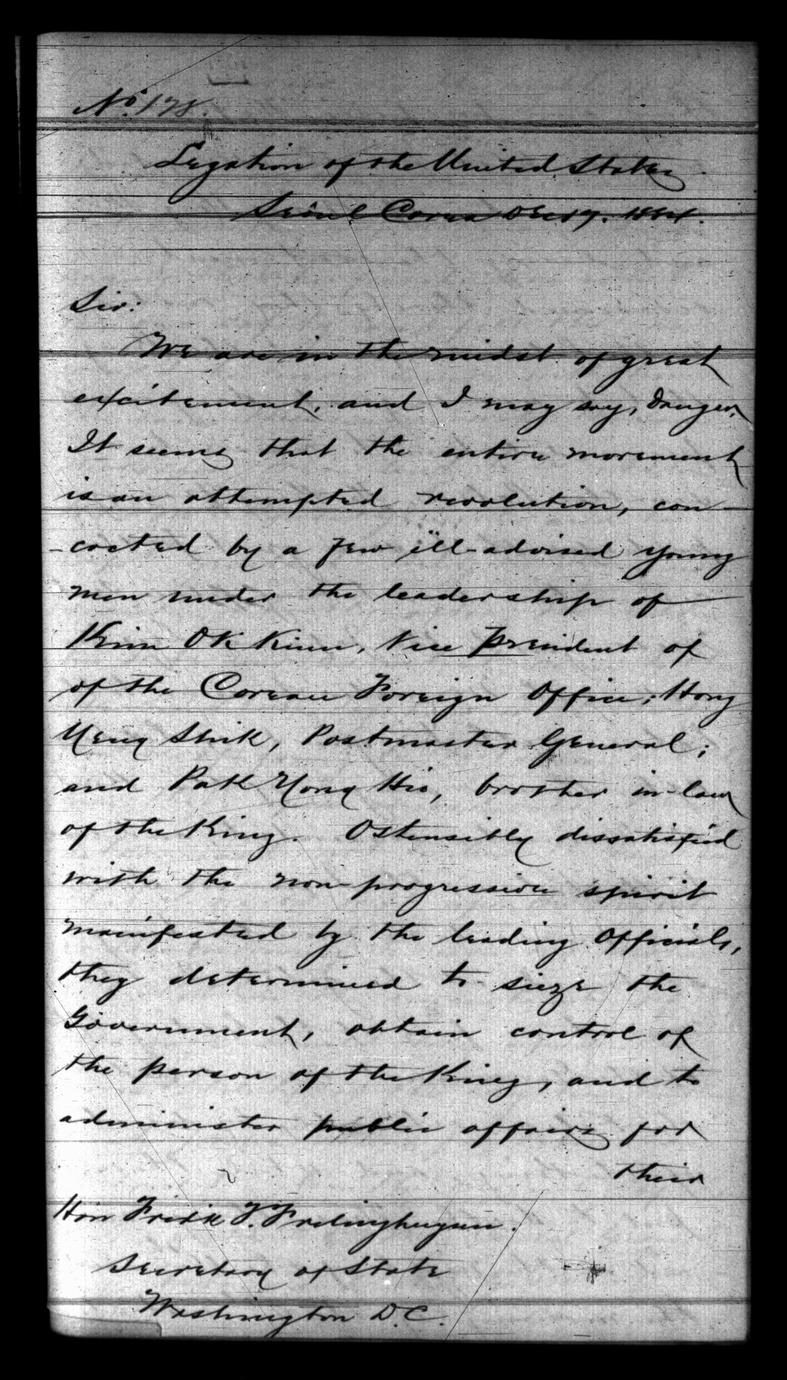 No. 128.
Legation of the United States
Seoul Corea Dec 17. 1884.
Sir:
We are in the midst of great
excitement, and I may say, danger.
It seems that the entire movement
is an attempted revolution, con-
-cocted by a few ill-advised young
men under the leadership of
Kim Ok Kiun, Vice President of
of the Corean Foreign Office; Hong
Yeng Shik, Postmaster General;
and Pak Yong Hio, brother in-law
of the King. Ostensibly dissatisfied
with the non-progressive spirit
mainfested by the leading Officials,
they determined to sieze the
Government, obtain control of
the person of the King, and to
administer public affairs for
their
Hon Fredk T. Frelinghuysen.
Secretary of State
Washington D.C.